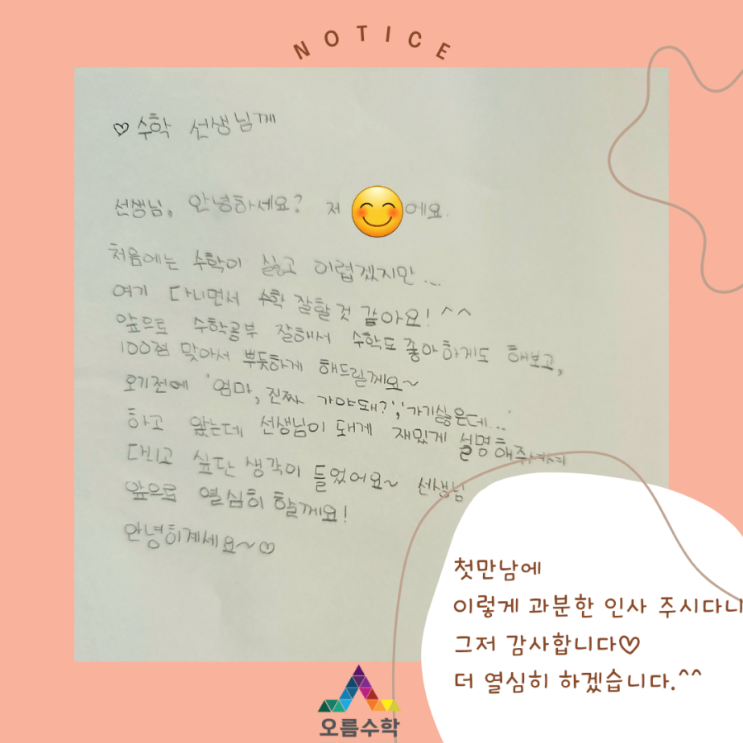 NOTICE
♡수학 선생님께
선생님, 안녕하세요? 저 😊에요.
처음에는 수학이 싫고 어렵겠지만...
여기 다니면서 수학 잘할것 같아요! ^^
앞으로 수학공부 잘해서 수학도 좋아하게도 해보고,
100점 맞아서 뿌듯하게 해드릴께요~
오기전에 '엄마, 진짜 가야돼?', '가기싫은데...'
하고 왔는데 선생님이 돼게 재밌게 설명해주
다니고 싶단 생각이 들었어요~ 선생님
앞으로 열심히 할께요!
안녕히계세요~♡
첫만남에
이렇게 과분한 인사 주시다니
그저 감사합니다♡
더 열심히 하겠습니다.^^
오름수학